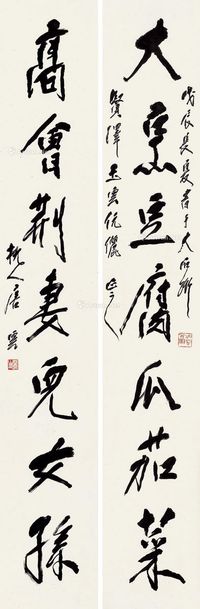 戊辰長夏書于大石齋
大烹豆腐瓜茄菜
賢澤玉雲伉儷正之
高會荊妻兒女孫
杭人唐雲